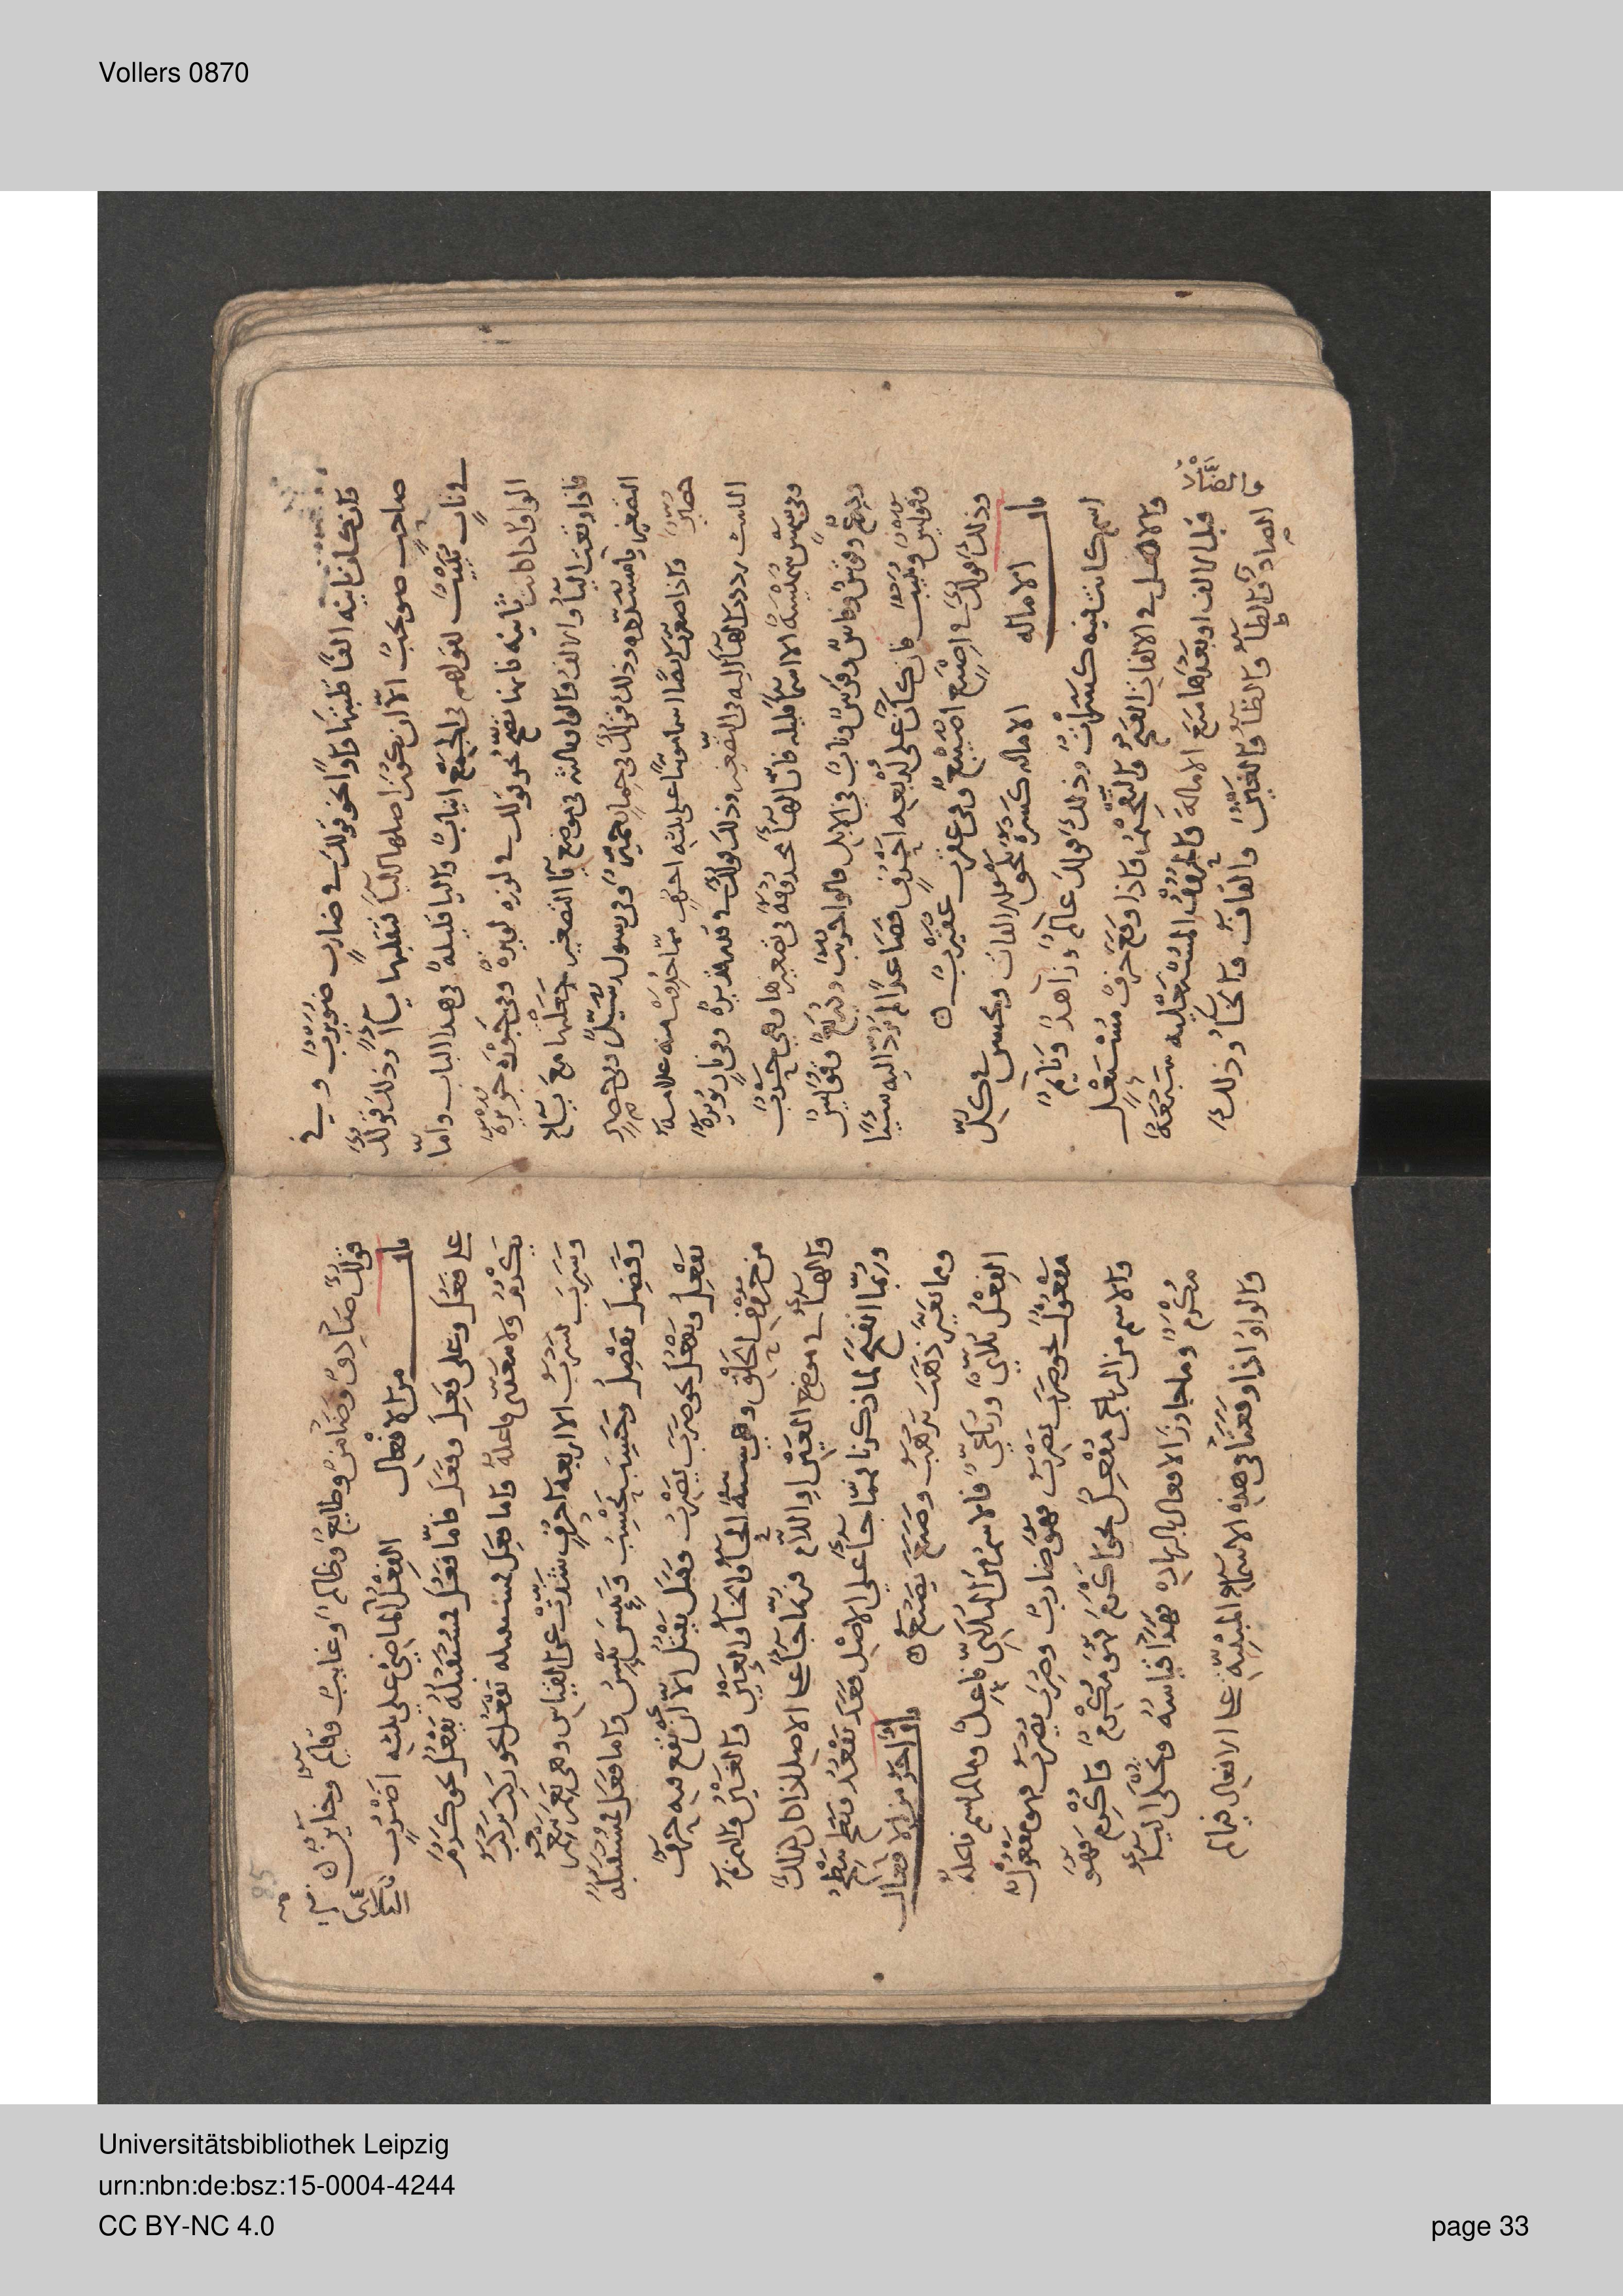 Vollers 0870
فان كان ثانيه الفا قلبتها واوا نحو قولك في ضارب ضويرب وفي
صاحب صويحب الا ان تكون اصلها اليا فتقلبها يا وذلك قولك
في ناب نييب لقولهم في الجمع انياب واليا قليلة في هذا الباب واما
الواو اذا كانت ثانيه فانها تفتح نحو قولك في لوزه لويزة وفي جوزه جويزة
فاذا وقعت اليا والالف والواو ثالثه في موضع يا التصغير جعلتها مع يا
التصغير يا مشدده وذلك قولك في حمار حمير وفي رسول رسيل وفي
واذا صغرت اسما مونثا على ثلثه احرف مما حذفت منه علامه
التانيث رددت الها اليه في التصغير وذلك قولك في قدر قديرة وفي نار نويرة
وفي شمس شميسة الا اسما قليله فان الها محذوفة في تصغيرها وهي حرب
ودرع وقوس وفاس وفرس وناب في الابل قالوا حريب ودريع
ونييب فان كان على اربعه احرف فصاعدا لم ترد اليه شيئا
وذلك قولك في اصبع اصيبع وفي عقرب عقيرب ۵
باب الاماله الاماله كسرة نحو الفات وتحسن في كل
اسم كانت فيه كسرات وذلك قولك عالم وزاهد ونايم
والاصل في الالفات الفتح والتفخيم فاذا وقع حرف مستعل
قبل الالف او بعدها منع الامالة والحروف المستعليه سبعة
والضاد
الصاد والطا والظا والغين والقاف والخا وذلك
قولك صادق وضامن وطالع وظالم وغايب وقايم وخاين ۵
باب من الافعال الفعل الماضي على ثلثه اضرب
على فعل وعلى فعل وفعل فاما فعل فمستقبله يفعل نحو كرم
يكرم ولا متعدى فاعله واما فعل فمستقبله يفعل نحو ركب يركب
وشرب يشرب الا اربعه احرف شذت عن القياس وهي نعم ينعم
وفضل يفضل وحسب يحسب ويئس ييئس واما فعل فمستقبله
يفعل ويفعل نحو ضرب يضرب وقتل يقتل الا ان يقع فيه حرف
من حروف الحلق وهي ستة الحا والخا والعين والغين والهمزه
والها في موضع العين او اللام فربما جا على الاصل اذا كان كذلك
وربما انفتح لما ذكرنا فمما جا على الاصل قعد يقعد
ومما تغير ذهب يذهب وصنع يصنع ۵ باب اخر من الافعال
الفعل ثلاثي ورباعي فالاسم من الثلاثي فاعل وما لم يسم فاعله
مفعول نحو ضرب يضرب فهو ضارب وضرب يضرب فهو مفعول
والاسم من الرباعي مفعل نحو اكرم فهو مكرم واكرم فهو
مكرم وما جاوز الافعال بالزياده فهذا قياسه وتحكى اليا
والواو اذا وقعتا في هذه الاسما المبنيه على الافعال فيما لم
85
Universitätsbibliothek Leipzig
urn:nbn:de:bsz:15-0004-4244
CC BY-NC 4.0
page 33